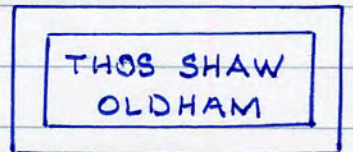 THOS SHAW
OLDHAM